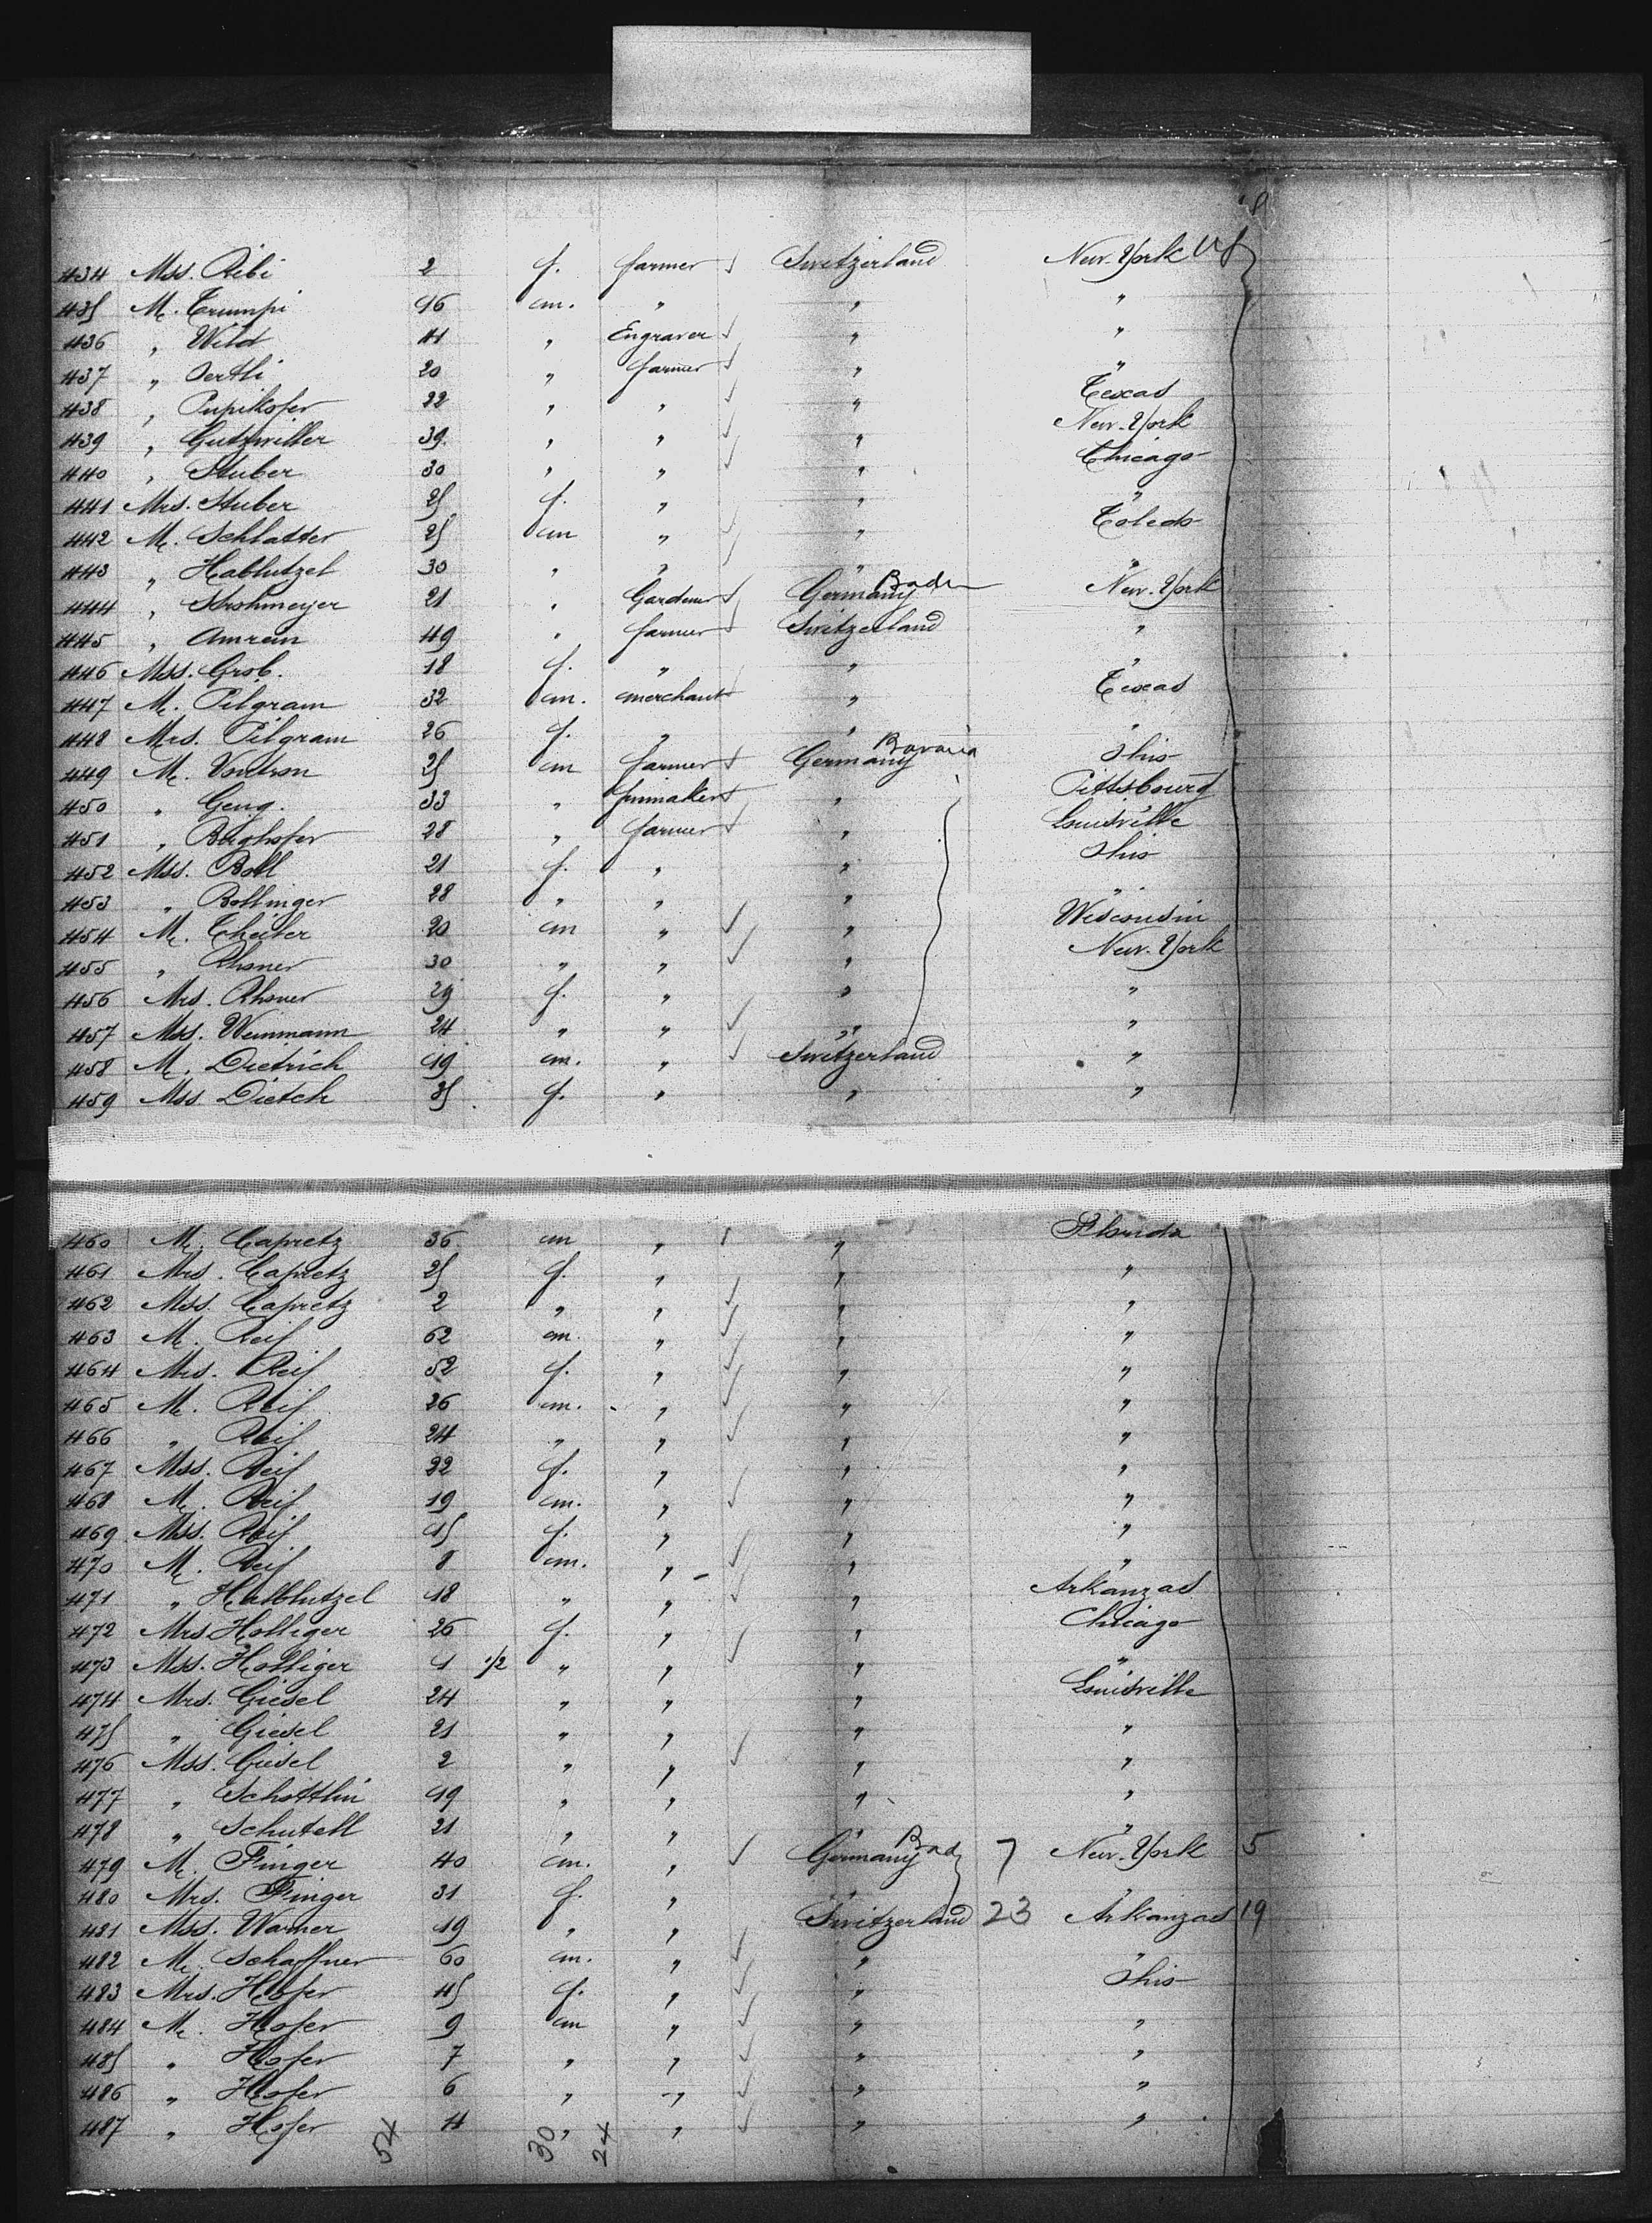 434 Mss. Ribi 2 f. farmer Switzerland New-York US
435 M. Trumpi 46 m. " " "
436 " Wild 41 " Engraver " "
437 " Oertli 20 " farmer " "
438 " Pupikofer 22 " " " Texas
439 " Gutzwiller 39 " " " New-York
440 " Stuber 30 " " " Chicago
441 Mrs. Stuber 25 f. " " "
442 M. Schlatter 25 m " " Toledo
443 " Hablutzel 30 " " " "
444 " Strohmeyer 21 " Gardener Germany Baden New-York
445 " Amrein 49 " farmer Switzerland "
446 Mss. Grob. 18 f. " " "
447 M. Pilgram 32 m. merchant " Texas
448 Mrs. Pilgram 26 f. " " "
449 M. 25 m farmer Germany Bavaria Ohio
450 " Geng. 33 " " Pittsbourg
451 " Berghofer 28 " farmer " Louisville
452 Mss. Boll 21 f. " " Ohio
453 " Bollinger 28 " " " "
454 M. Theiler 20 m " " Wisconsin
455 " Rhoner 30 " " " New-York
456 Mrs. Rhoner 29 f. " " "
457 Mss. Weinmann 24 " " " "
458 M. Dietrich 19 m. " Switzerland "
459 Mss. Dietch 35 f. " " "
460 M. Capretz 36 m " " Florida
461 Mrs. Capretz 25 f. " " "
462 Mss. Capretz 2 " " " "
463 M. Reif 62 m. " " "
464 Mrs. Reif 52 f. " " "
465 M. Reif 26 m. " " "
466 " Reif 24 " " " "
467 Mss. Reif 22 f. " " "
468 M. Reif 19 m. " " "
469 Mss. Reif 15 f. " " "
470 M. Reif 8 m. " " "
471 " Hablutzel 18 " " " Arkanzas
472 Mrs Holliger 26 f. " " Chicago
473 Mss. Holliger 1 1/2 " " " "
474 Mrs. Giesel 24 " " " Louisville
475 " Giesel 21 " " " "
476 Mss. Giesel 2 " " " "
477 " Schottlin 19 " " " "
478 " Schutell 21 " " " "
479 M. Finger 40 m. " Germany Bad 7 New-York 5
480 Mrs. Finger 31 f. " " "
481 Mss. Warner 19 " " Switzerland 23 Arkanzas 19
482 M. Schaffner 60 m. " " "
483 Mrs. Hofer 45 f. " " Ohio
484 M. Hofer 9 m " " "
485 " Hofer 7 " " " "
486 " Hofer 6 " " " "
487 " Hofer 4 " " " "
54 30 24